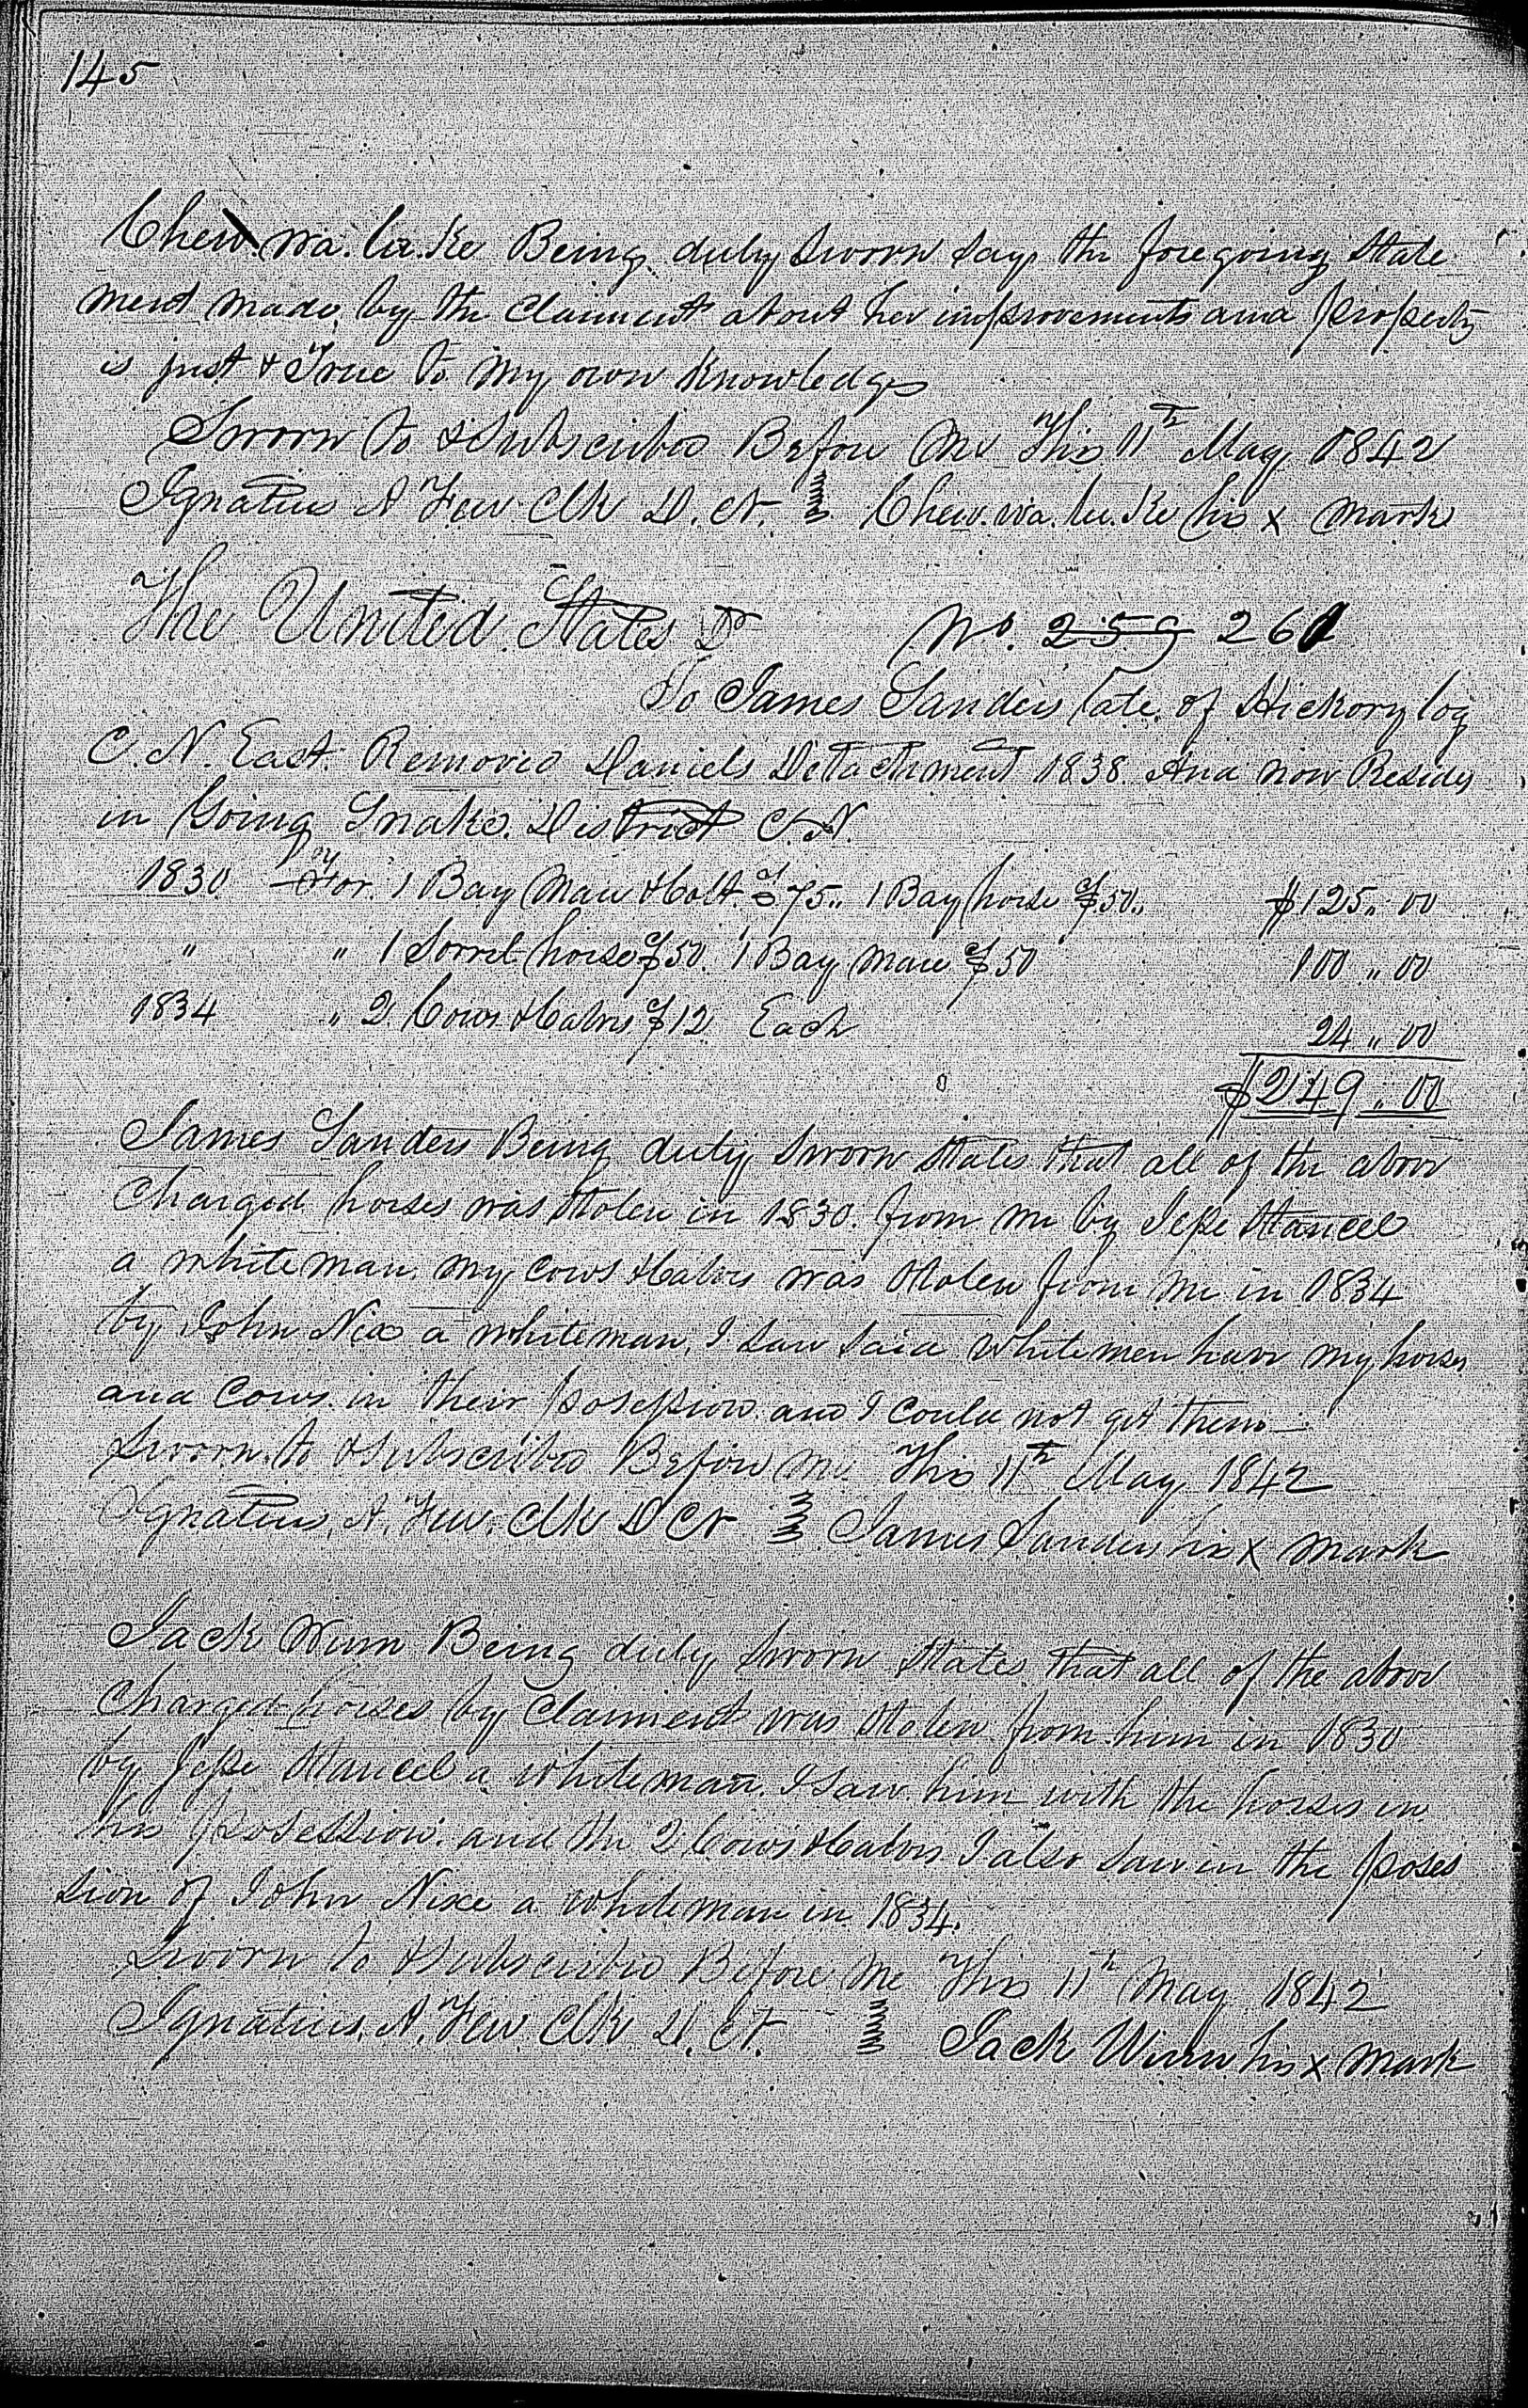 145
Chew.wa.lu.ke Being duly Sworn Says the foregoing State
ment made by the Claimant about her improvements and property
is just & True to my own Knowledge
Sworn to & Subscribed Before Me This 11th May 1842
Ignatius A Few Clk D. Ct. Chew.wa.lu.ke his x mark
The United States Dr No. 259 261
To James Sanders late of Hickory log
C. N. East. Removed Daniels Detachment 1838. And now Resides
in Going Snake District C. N.
1830 For 1 Bay Mare & Colt of $75,, 1 Bay horse of $50,, $125,, 00
" " 1 Sorrel horse of $50. 1 Bay Mare of $50 100 ,, 00
1834 " 2 Cows & Calves of $12 Each 24 ,, 00
$249 ,, 00
James Sanders Being duly Sworn States that all of the above
Charged horses was Stolen in 1830. from me by Jesse Stancel
a whiteman. my cows & Calves was Stolen from me in 1834
by John Nix a whiteman, I saw said whitemen have my horses
and Cows in their possession and I could not get them
Sworn to & Subscribed Before me This 11th May 1842
Ignatius. A. Few. Clk D Ct James Sanders his x mark
Jack Winn Being duly Sworn States that all of the above
Charged horses by Claiment was Stolen from him in 1830
by Jesse Stancel a whiteman. I saw him with the horses in
his possession. and the 2 Cows & Calves I also saw in the poses
sion of John Nixe a whiteman in 1834.
Sworn to & Subscribed Before Me This 11th May 1842
Ignatius. A. Few Clk D. Ct. Jack Winn his x mark